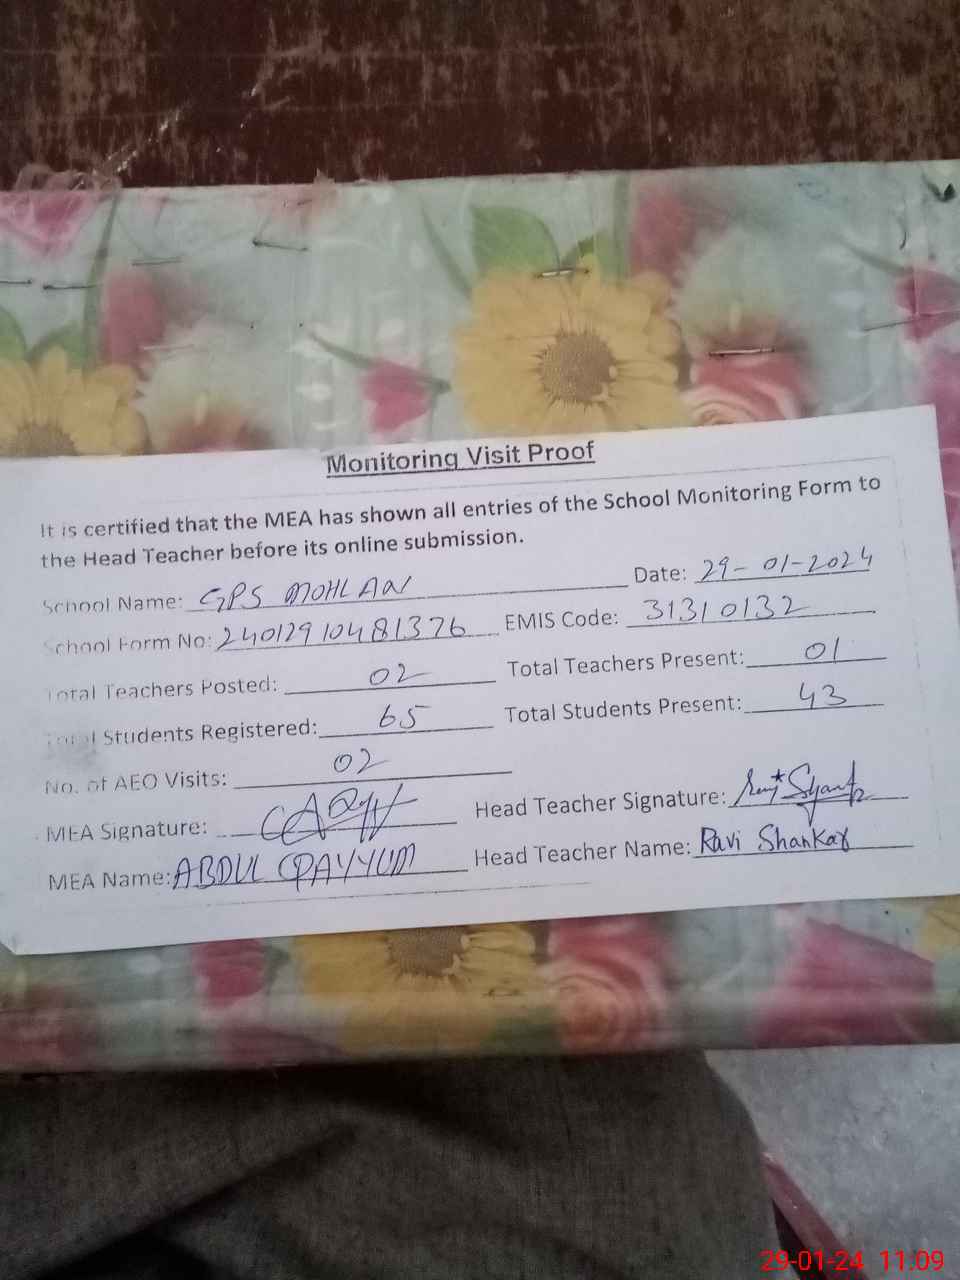 Monitoring Visit Proof
It is certified that the MEA has shown all entries of the School Monitoring Form to
the Head Teacher before its online submission.
School Name: GPS MOHLAN Date: 29-01-2024
School Form No: 24012910481376 EMIS Code: 31310132
Total Teachers Posted: 02 Total Teachers Present: 01
Total Students Registered: 65 Total Students Present: 43
No. of AEO Visits: 02
MEA Signature: Head Teacher Signature:
MEA Name: ABDUL QAYYUM Head Teacher Name: Ravi Shankar
29-01-24 11:09